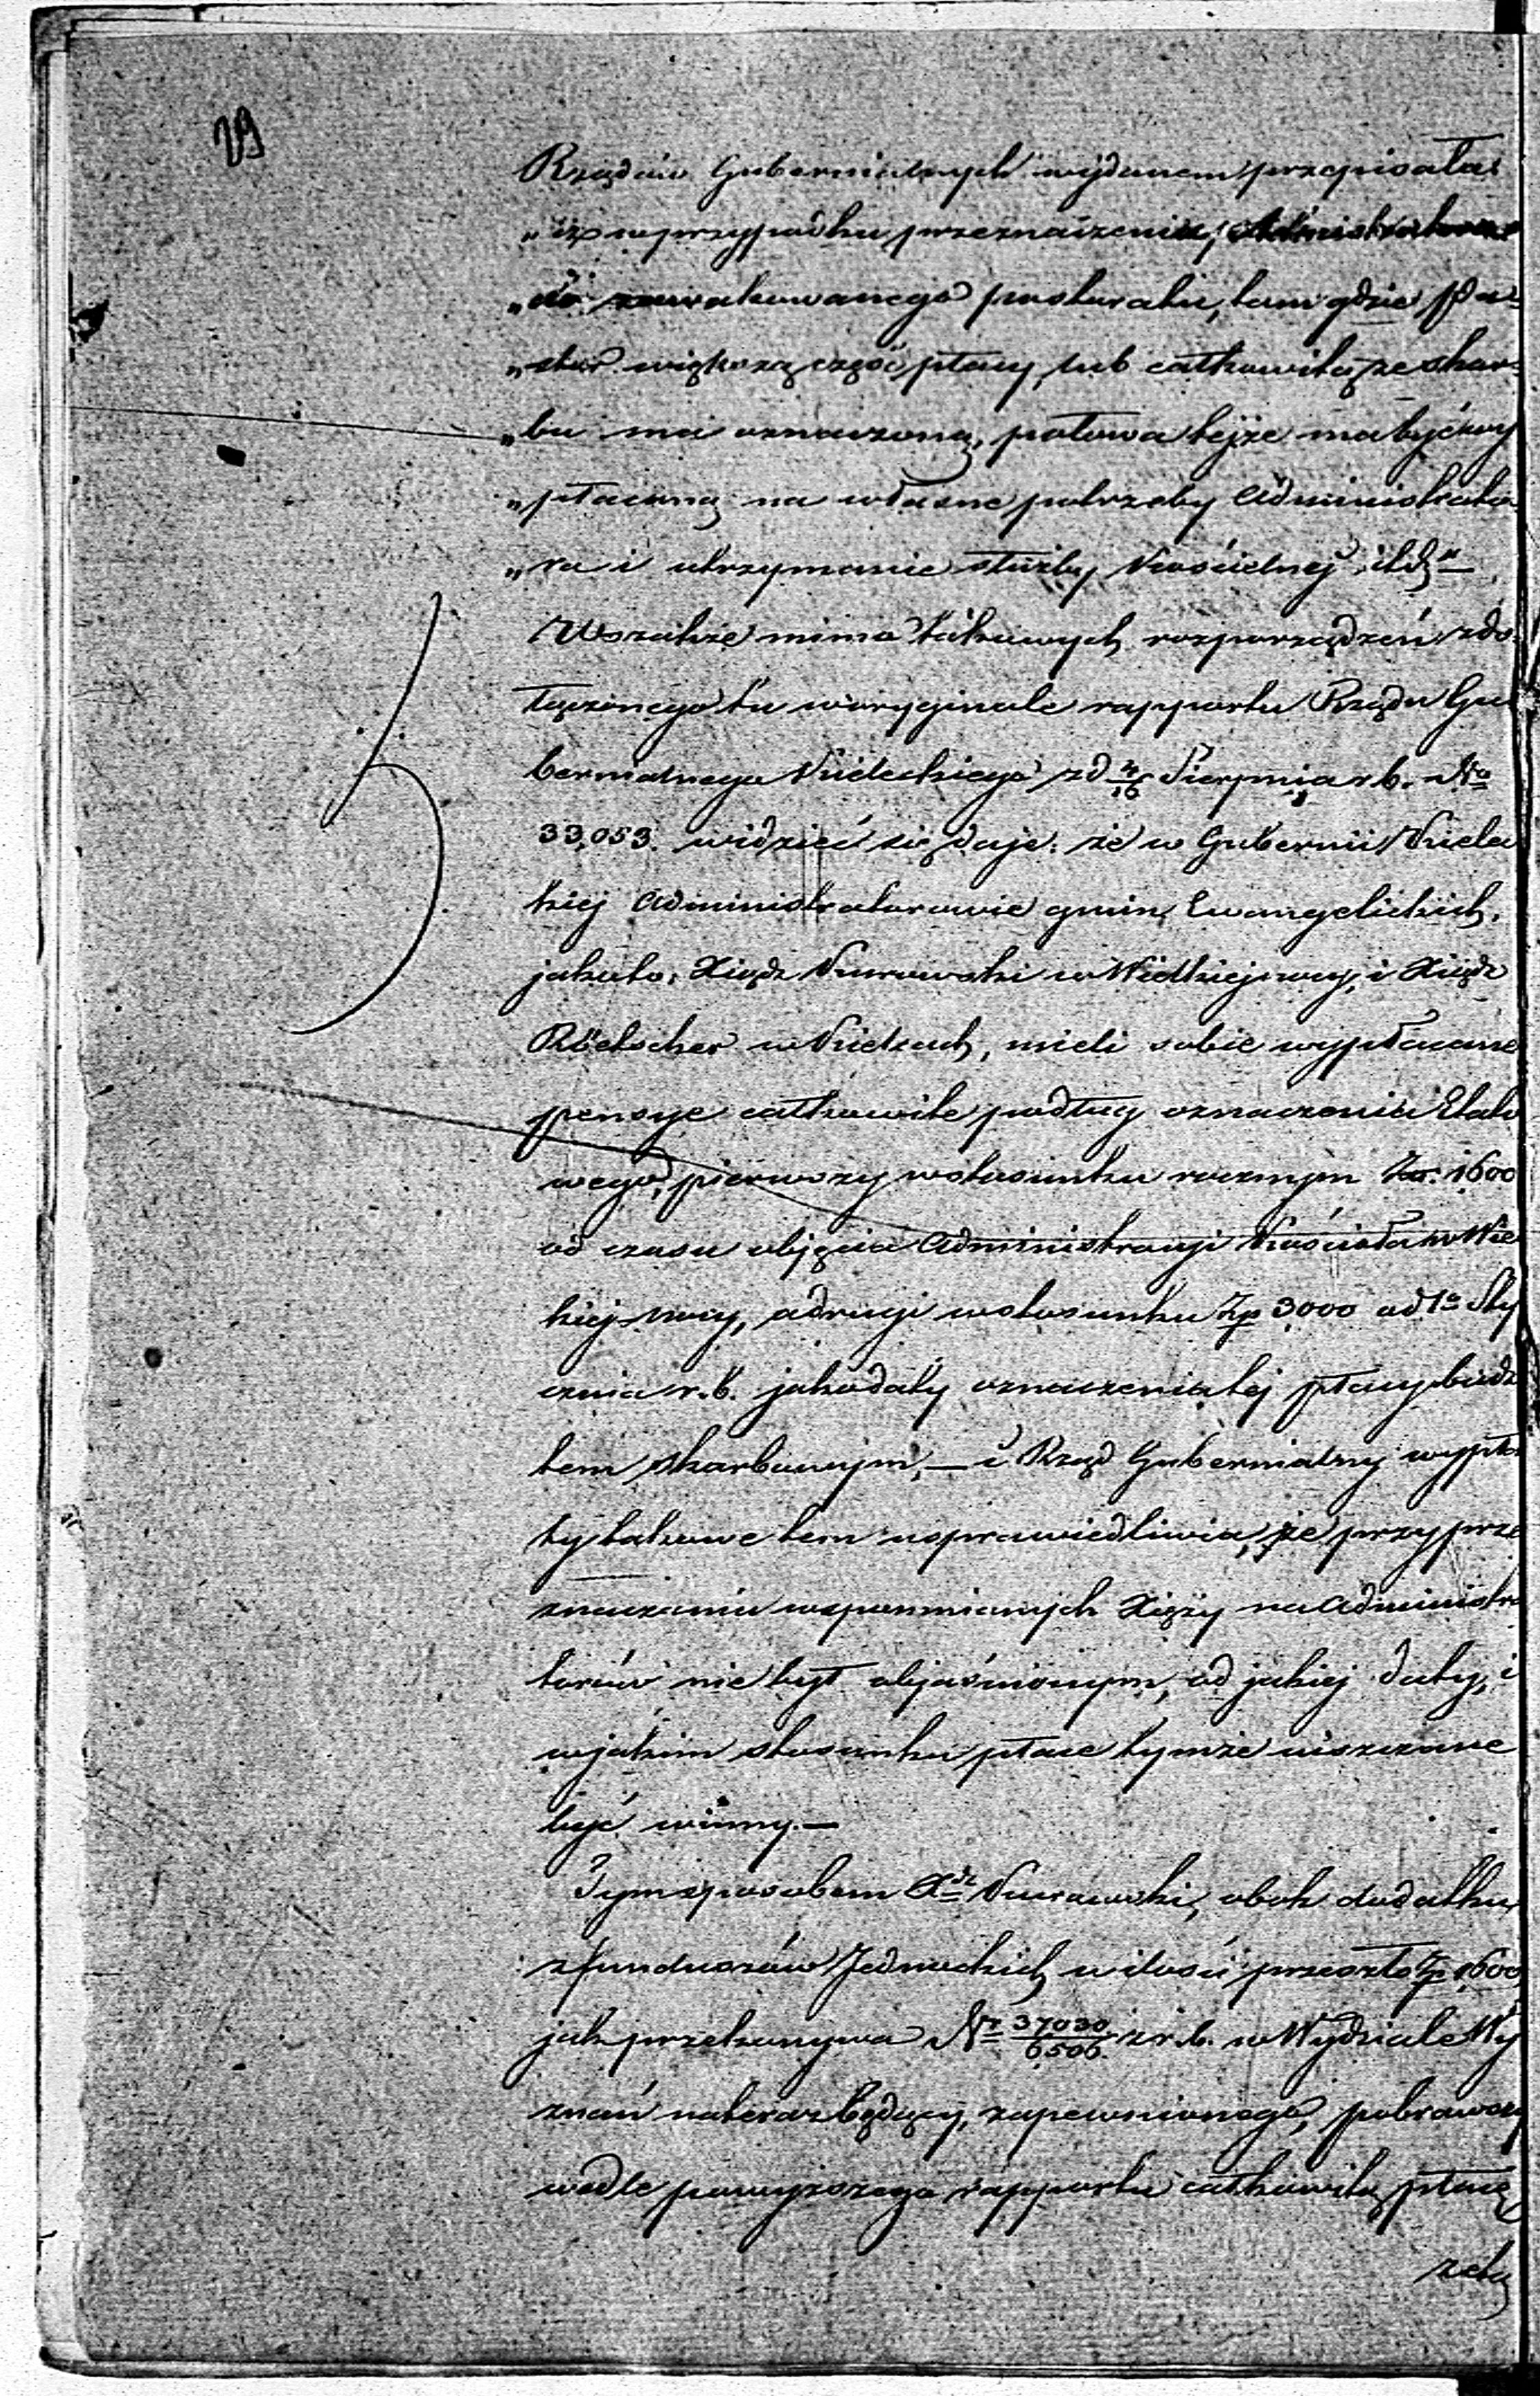 Rządów Gubernialnych wydanem przepisała:
„iż w przypadku przeznaczenia, Administratora
„do zawakowanego pastoratu, tam gdzie Pa-
„stor większą część płacy, lub całkowitą ze skar-
„bu ma oznaczoną, połowa tejże ma być wy
„płacaną na własne potrzeby Administrato
„ra i utrzymanie służby Kościelnej itd."—
Wszakże mimo takowych rozporządzeń z do-
łączonego tu w oryginale rapportu Rządu Gu
bernialnego Kieleckiego z d 4/16 Sierpnia r.b. No
33,053. widzieć się daje: że w Gubernii Kielec
kiej Administratorowie gmin Ewangelickich,
jakoto: Xiądz Nurowski w Wielkiejwsy, i Xiądz
Röelscher w Kielcach, mieli sobie wypłacane
pensye całkowite podług oznaczenia Etato
wego, pierwszy w stosunku rocznym Złp. 1600
od czasu objęcia Administracyi Kościoła w Wiel
kiej-wsy, a drugi w stosunku Złp 3000 od 1o Sty
cznia r.b. jako daty oznaczenia tej płacy budże
tem skarbowym,— i Rząd Gubernialny wypła
ty takowe tem usprawiedliwia, że przy prze
znaczaniu wspomnianych Xięży na Administra
torów nie był objaśnionym, od jakiej daty, i
w jakim stosunku płace tymże uiszczane
być winny.—
Tym sposobem Xdz Nurowski, obok dodatku
z funduszów Jednockich w ilości przeszło Złp 1600
jak przekonywa Nr 37030/6506. z r.b. w Wydziale Wy
znań nateraz będący, zapewnionego, pobrawszy
wedle powyższego rapportu całkowitą płacę
zeta